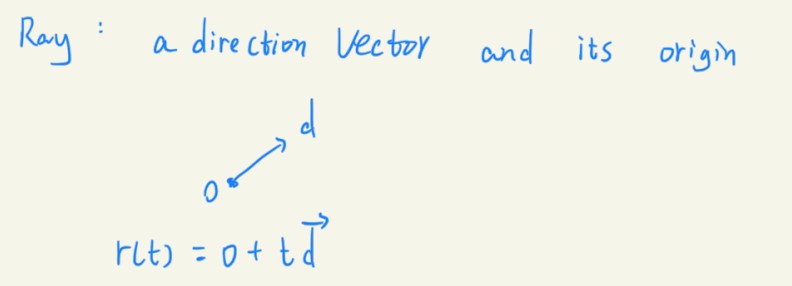 Ray : a direction vector and its origin
d
o
r(t) = o + t d⃗